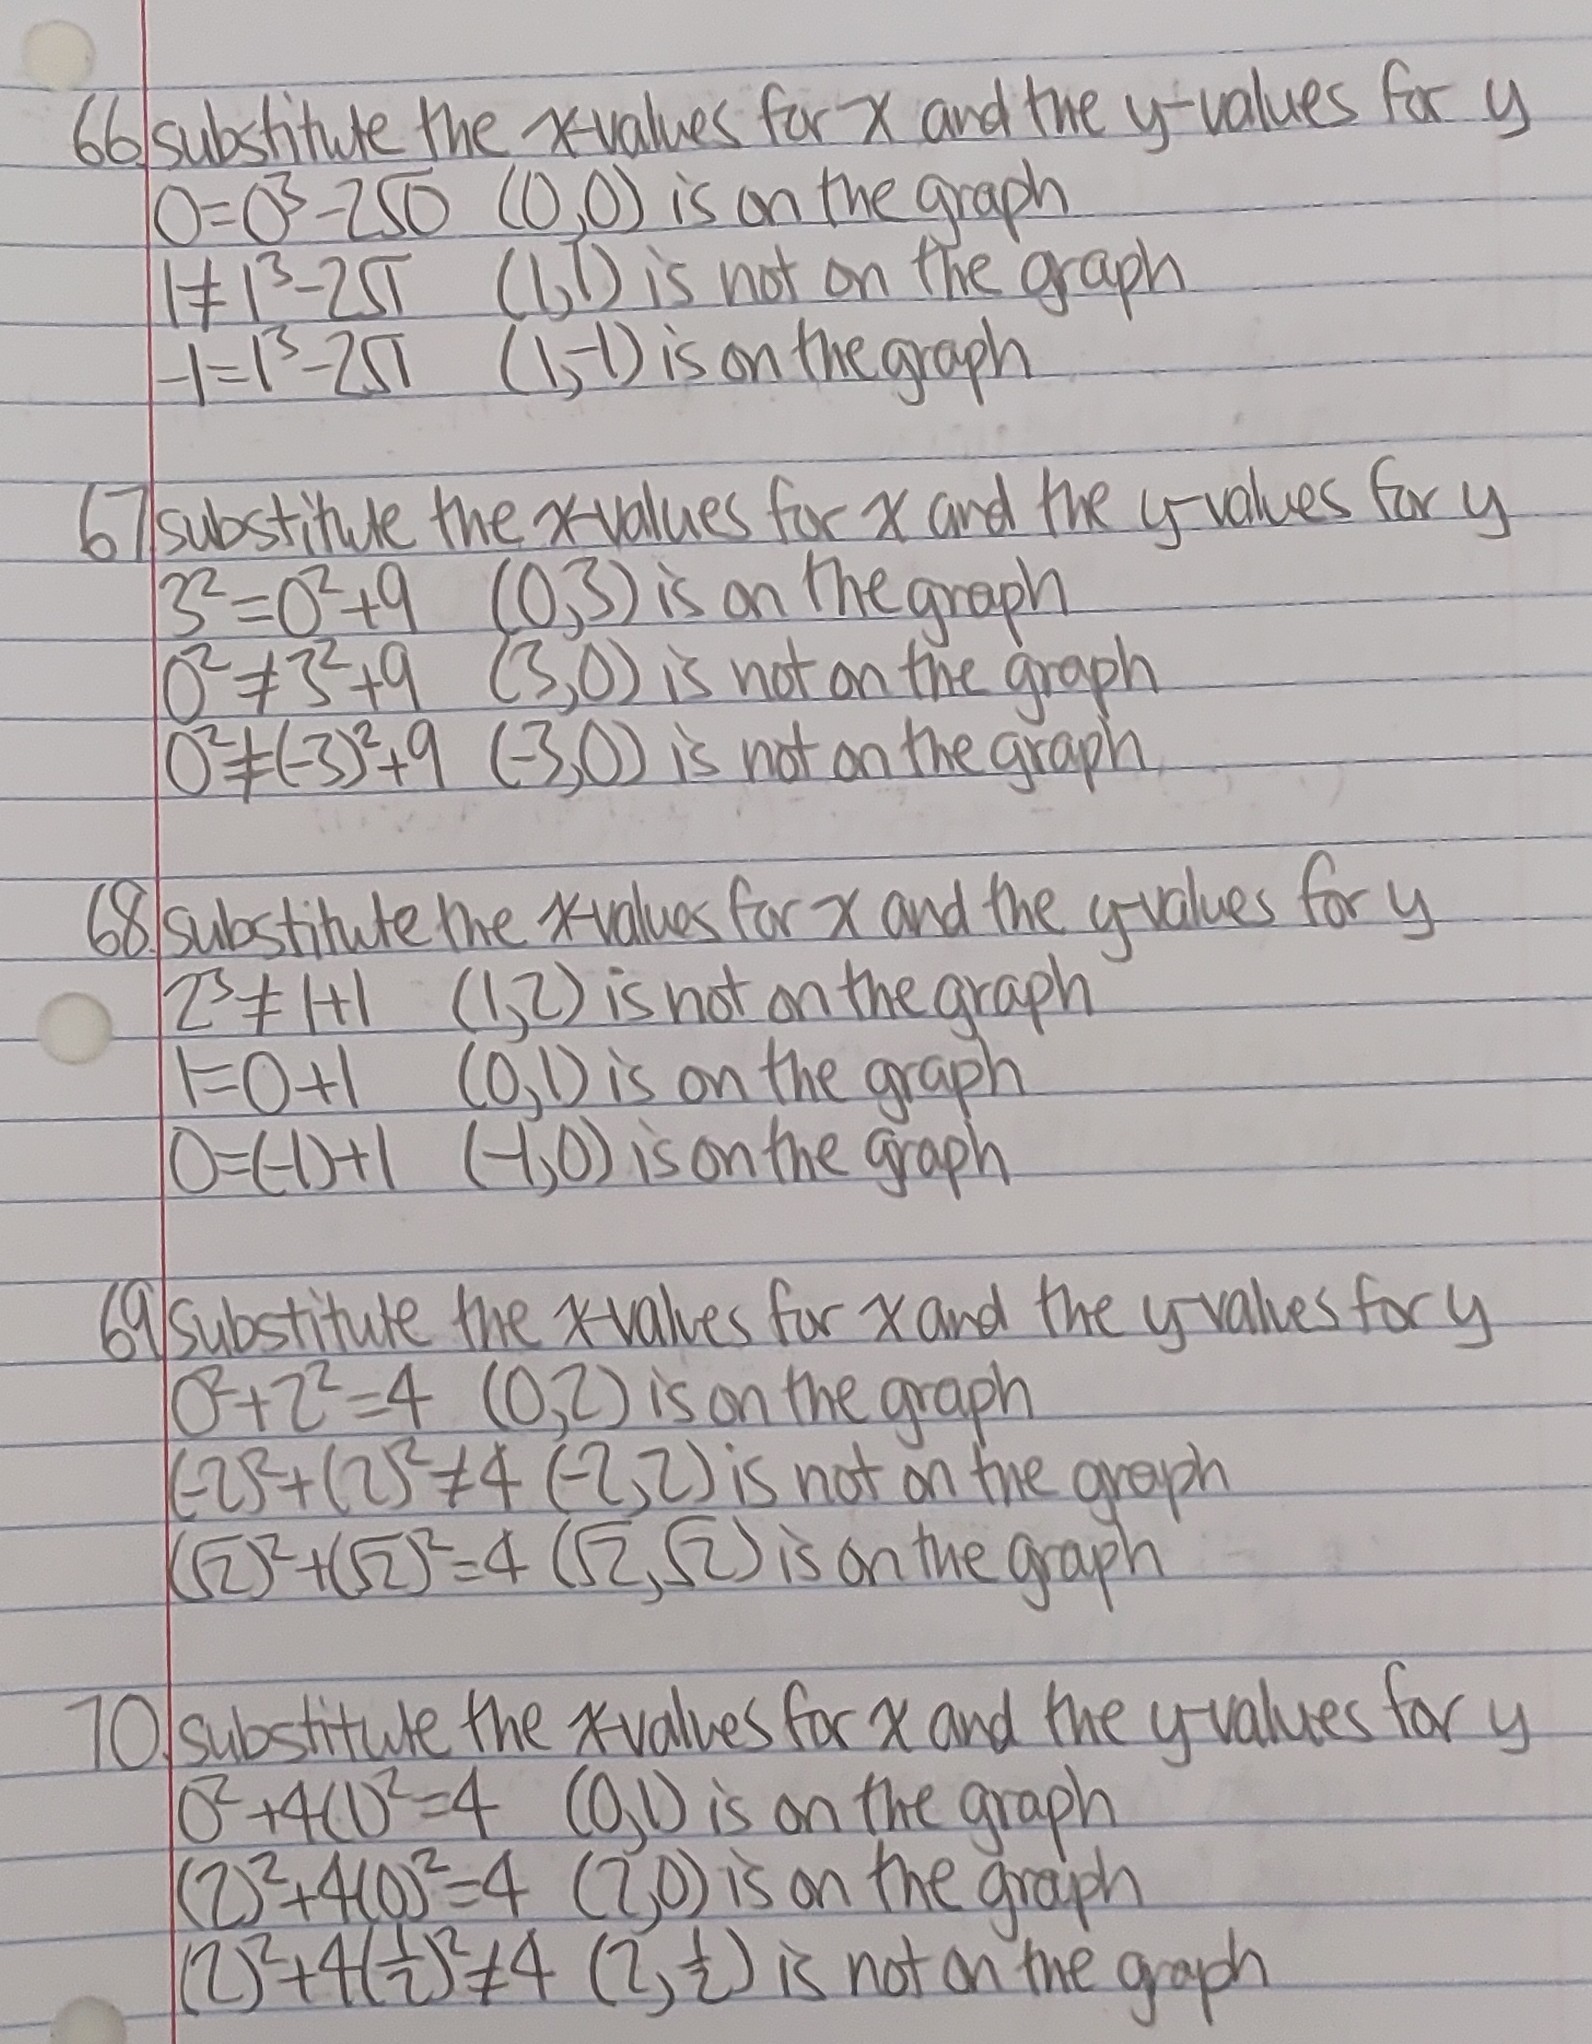 66. substitute the x-values for x and the y-values for y
0=0³-2√0 (0,0) is on the graph
1≠1³-2√1 (1,1) is not on the graph
-1=1³-2√1 (1,-1) is on the graph
67. substitute the x-values for x and the y-values for y
3²=0²+9 (0,3) is on the graph
0²≠3²+9 (3,0) is not on the graph
0²≠(-3)²+9 (-3,0) is not on the graph
68. substitute the x-values for x and the y-values for y
2³≠1+1 (1,2) is not on the graph
1=0+1 (0,1) is on the graph
0=(-1)+1 (-1,0) is on the graph
69. substitute the x-values for x and the y-values for y
0²+2²=4 (0,2) is on the graph
(-2)²+(2)²≠4 (-2,2) is not on the graph
(√2)²+(√2)²=4 (√2,√2) is on the graph
70. substitute the x-values for x and the y-values for y
0²+4(1)²=4 (0,1) is on the graph
(2)²+4(0)²=4 (2,0) is on the graph
(2)²+4(½)²≠4 (2,½) is not on the graph